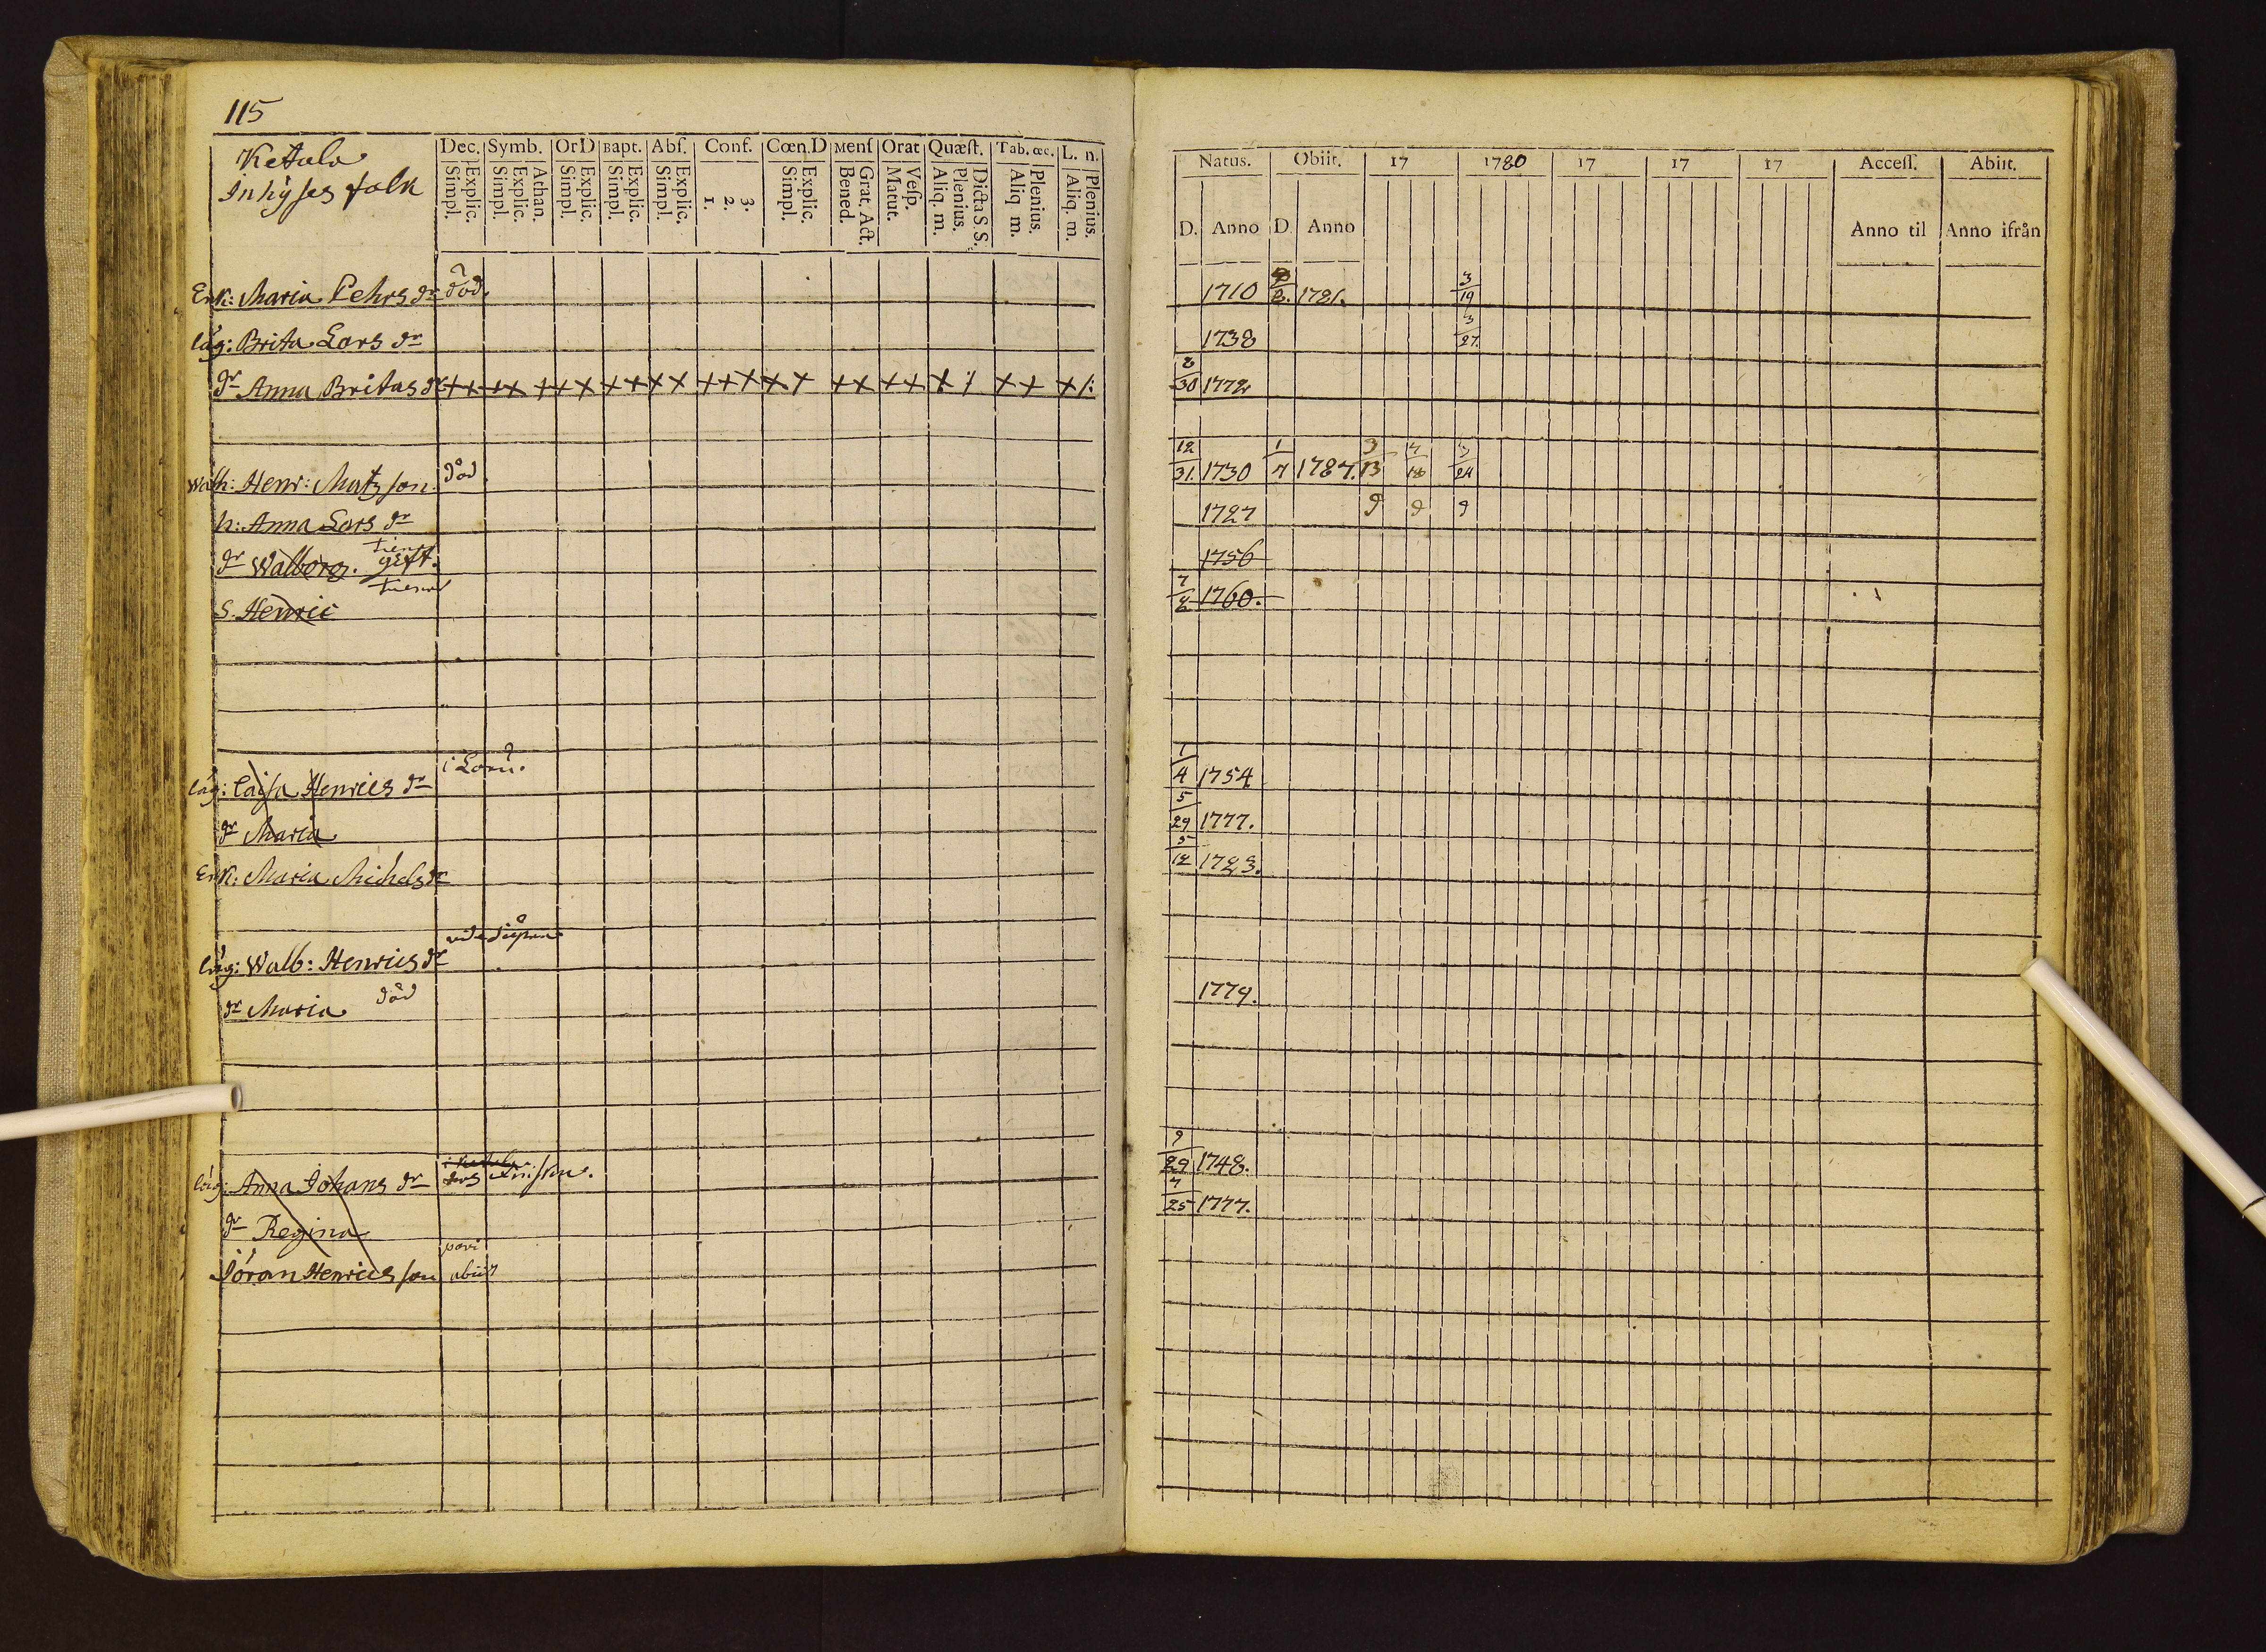 115
Ketala
Inhyses folk
Dec. Symb. Or D Bapt. Abſ. Conf. Cœn.D Menſ Orat Quæſt. Tab. œc. L. n.
Explic. Simpl. Athan. Explic. Simpl. Explic. Simpl. Explic. Simpl. Explic. Simpl. 3. 2. 1. Explic. Simpl. Grat. Act. Bened. Veſp. Matut. Dicta S. S. Plenius. Aliq. m. Plenius. Aliq m. Plenius. Aliq. m.
Natus. Obiit. 17 1780 17 17 17 Acceſſ. Abiit.
D. Anno D. Anno Anno til Anno ifrån
Enk: Maria Pehrs dr död. 1710 2. 1781. 3/19
låg: Brita Lars dr 1738 3/27.
dr Anna Britas dr 8/30 1772
Wah: Henr: Matz son död. 12/31. 1730 1/7 1787. 3/24
h: Anna Lars dr 1727 9 9 9
dr Walborg. gift. 1756
S. Henric 7/2 1760.
låg: Caisa Henrics dr 1/4 1754
dr Maria 5/29 1777.
Enk: Maria Michels dr 5/12 1723.
låg: Walb: Henrics dr
dr Maria död 1779.
låg: Anna Johans dr 9/29 1748.
dr Regina 7/25 1777.
Jöran Henrics son abiit